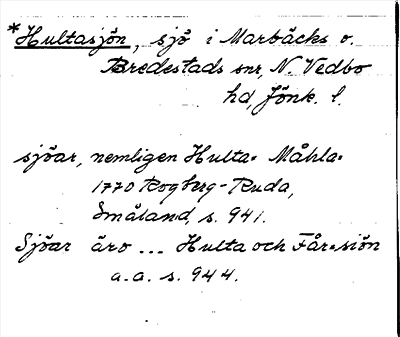 *Hultasjön, sjö i Marbäcks o.
Bredestads snr, N. Vedbo
hd, Jönk. l.
sjöar, nemligen Hulta= Måhla=
1770 Rogberg-Ruda,
Småland, s. 941.
Sjöar äro ... Hulta och Får=siön
a.a. s. 944.